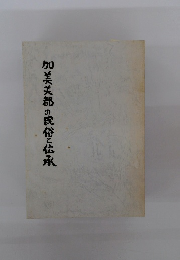 加美奥部の民俗と伝承